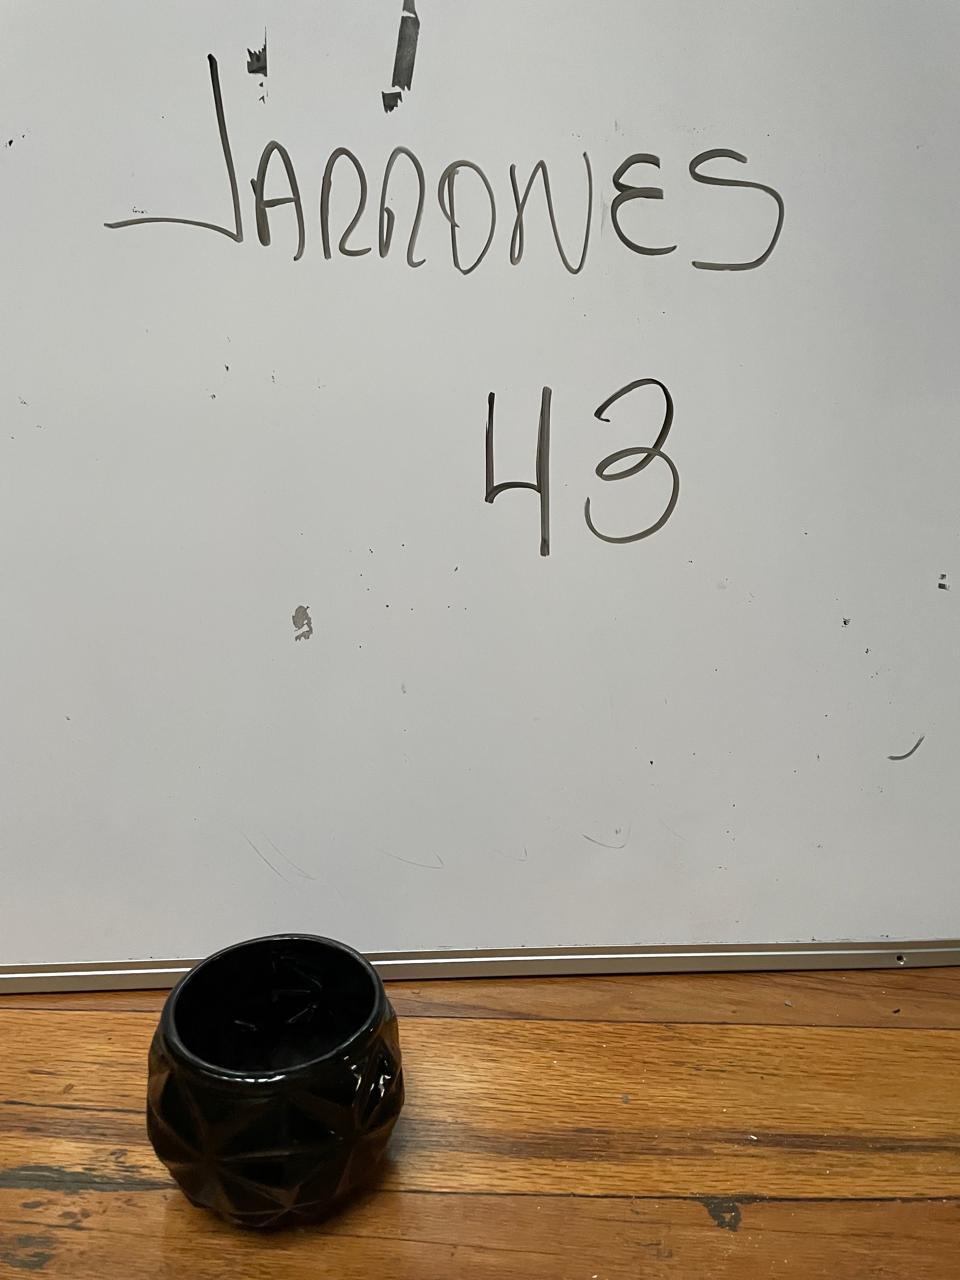 JARRONES
43